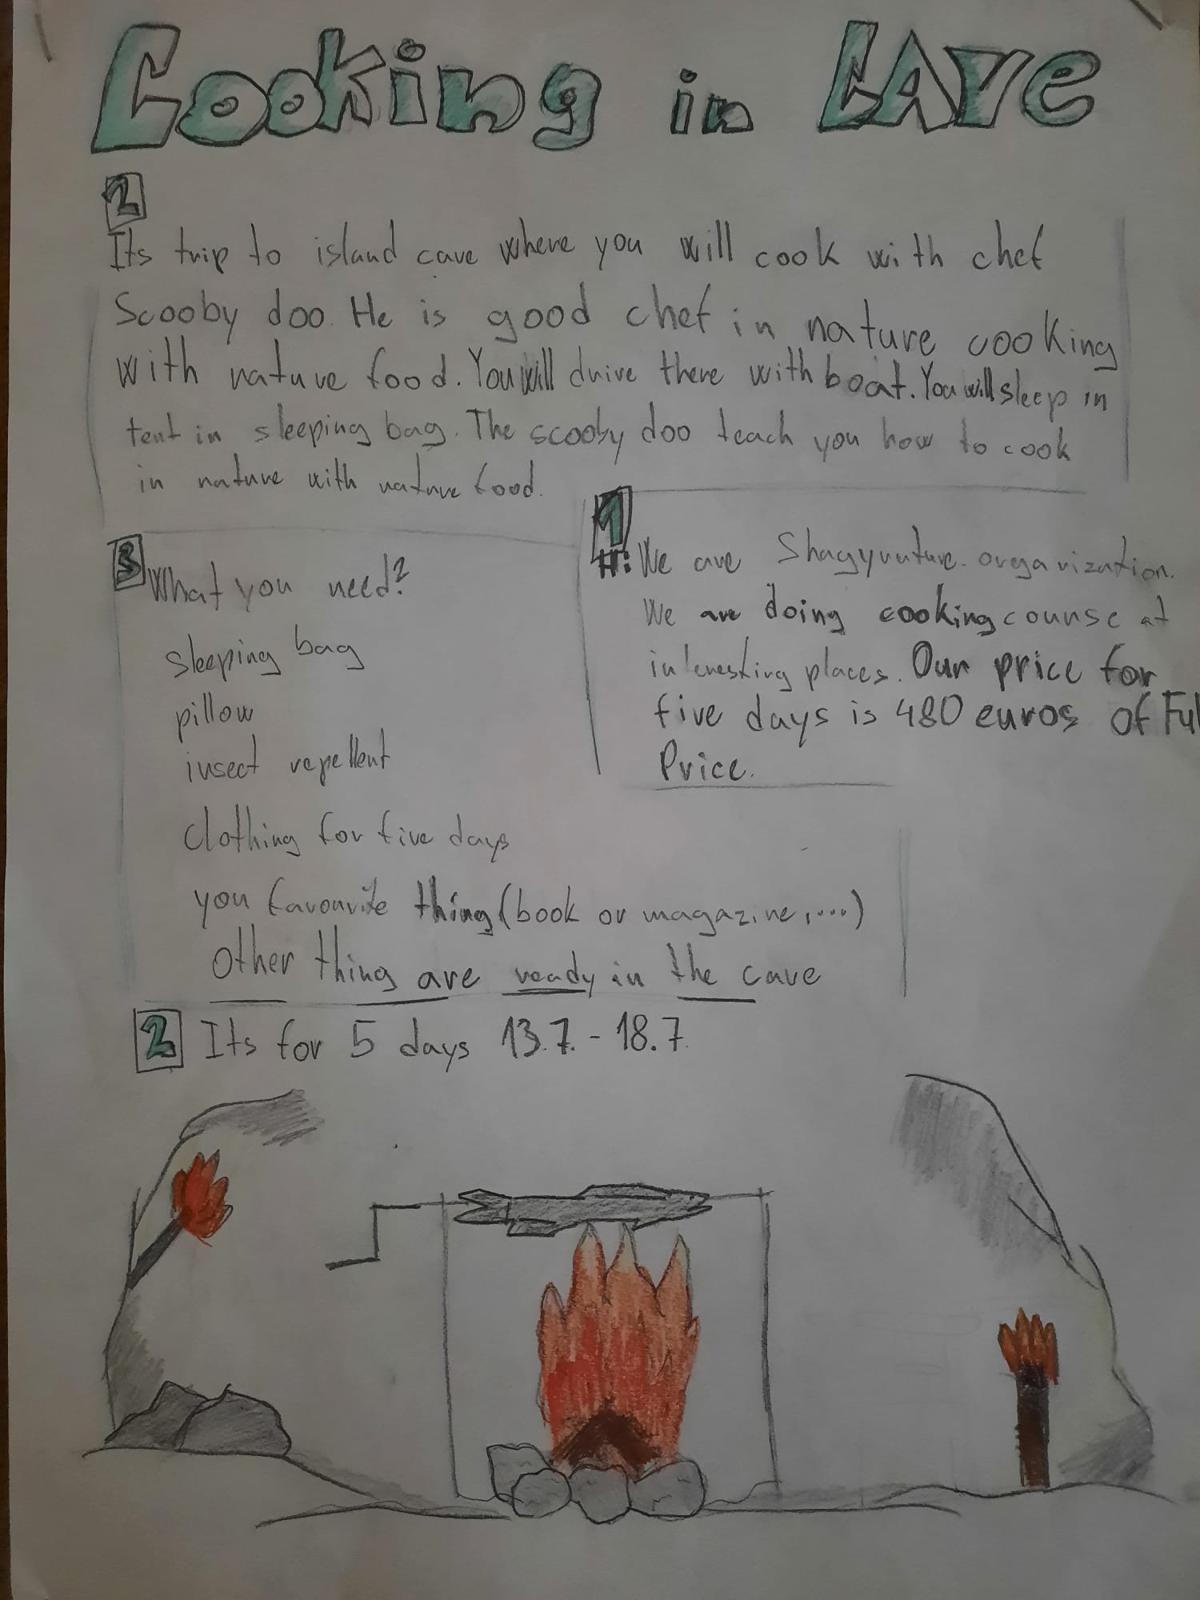 Cooking in CAVe
2
Its trip to island cave where you will cook with chef
Scooby doo. He is good chef in nature cooking
with nature food. You will drive there with boat. You will sleep in
tent in sleeping bag. The scooby doo teach you how to cook
in nature with nature food.
1
Hi: We are Shagynature organization.
We are doing cooking course at
interesting places. Our price for
five days is 480 euros of Ful
Price.
3
What you need?
sleeping bag
pillow
insect repellent
Clothing for five days
you favourite thing (book or magazine,....)
other thing are ready in the cave
2 Its for 5 days 13.7. - 18.7.